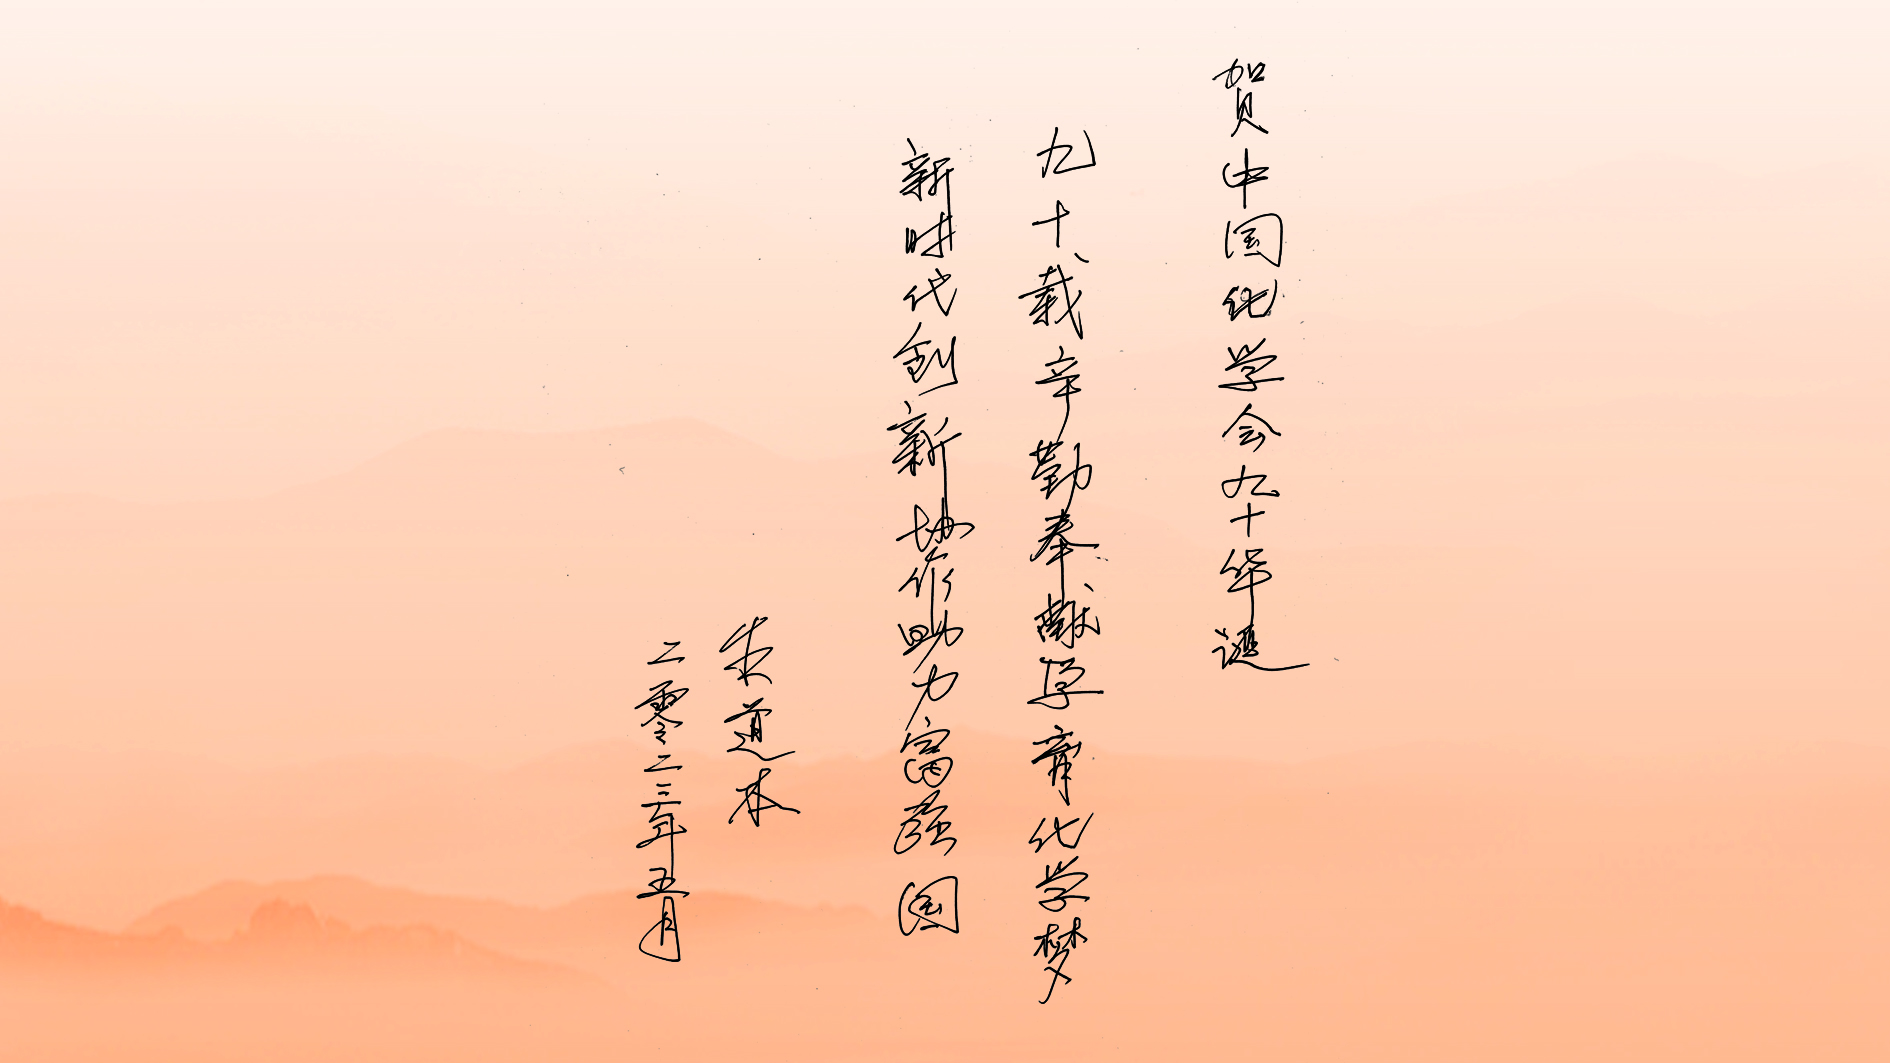 贺中国化学会九十华诞
九十载辛勤奉献厚育化学梦
新时代创新协作助力富强国
朱道本
二零二三年五月